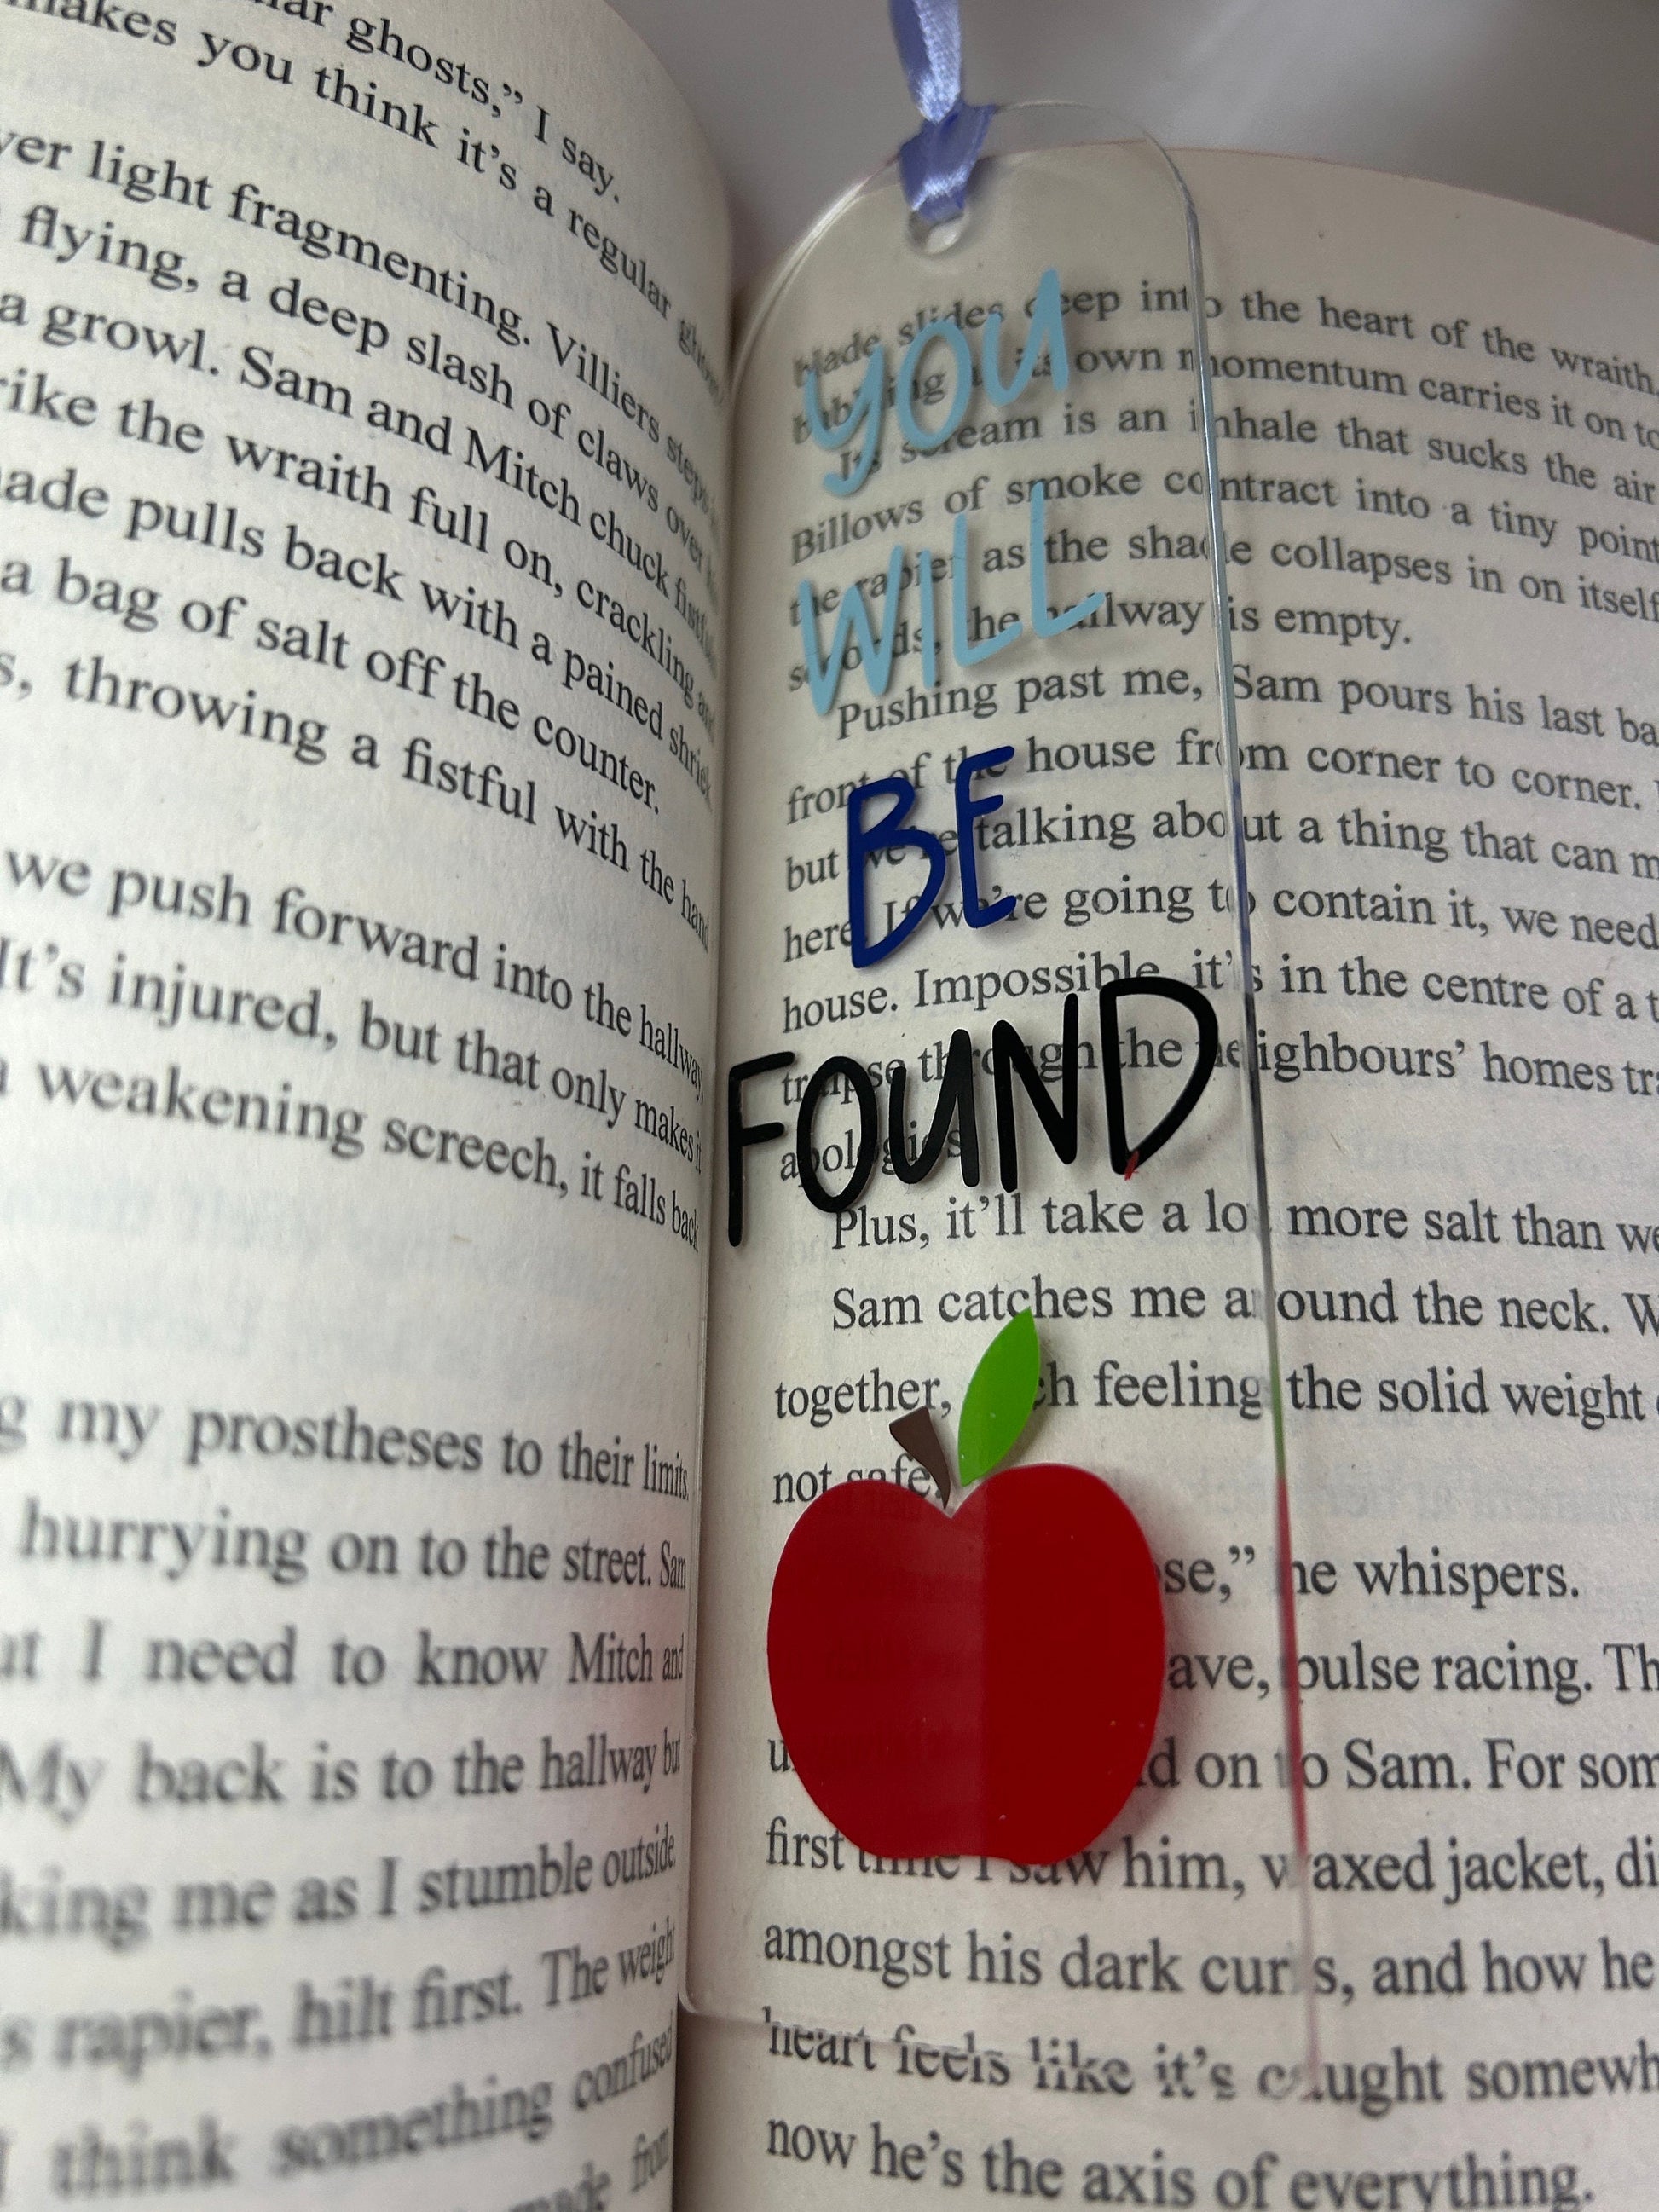 ar ghosts,” I say.
makes you think it’s a regular
ver light fragmenting. Villiers steps
flying, a deep slash of claws over
a growl. Sam and Mitch chuck
rike the wraith full on, crackling and
ade pulls back with a pained shriek
a bag of salt off the counter.
s, throwing a fistful with the hand
we push forward into the hallway,
It’s injured, but that only makes it
weakening screech, it falls back
g my prostheses to their limits,
hurrying on to the street. Sam
ut I need to know Mitch and
My back is to the hallway but
king me as I stumble outside.
s rapier, hilt first. The weight
I think something confused
made from
YOU
WILL
BE
FOUND
blade slides deep into the heart of the wraith,
own momentum carries it on to
Its scream is an inhale that sucks the air
Billows of smoke contract into a tiny point
the rapier as the shade collapses in on itself
seconds, the hallway is empty.
Pushing past me, Sam pours his last ba
front of the house from corner to corner.
but we’re talking about a thing that can m
here. If we’re going to contain it, we need
house. Impossible, it’s in the centre of a t
traipse through the neighbours’ homes tra
apologies.
Plus, it’ll take a lot more salt than we
Sam catches me around the neck. W
together, each feeling the solid weight
not safe.
se,” he whispers.
ave, pulse racing. Th
u d on to Sam. For som
first time I saw him, waxed jacket, di
amongst his dark curls, and how he
heart feels like it’s caught somewh
now he’s the axis of everything.